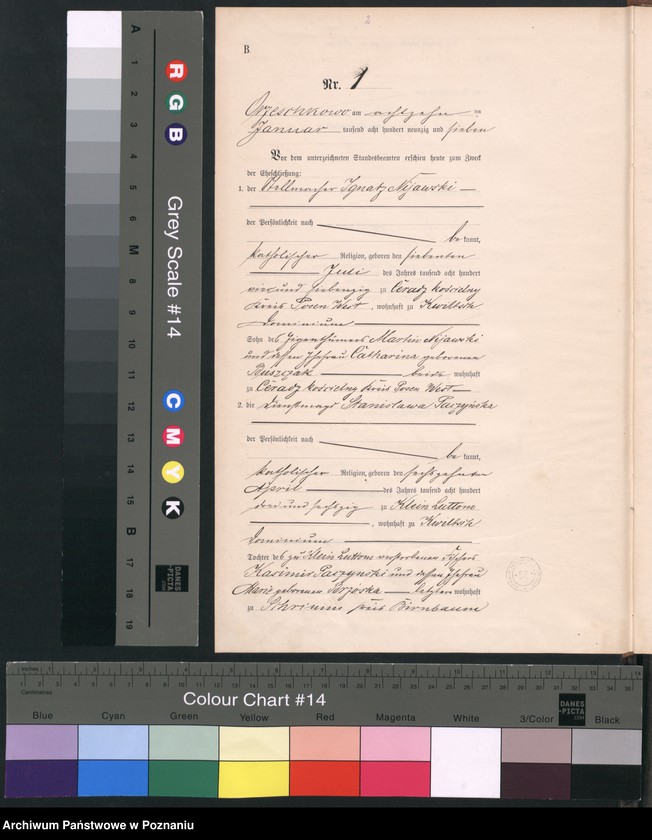 2
B.
Nr. 1
Orzeschkowo am achtzehn ten
Januar tausend acht hundert neunzig und sieben
Vor dem unterzeichneten Standesbeamten erschien heute zum Zweck
der Eheschließung:
1. der Stellmacher Ignatz Nijawski
der Persönlichkeit nach
be kannt,
katholischer Religion, geboren den siebenten
Juli des Jahres tausend acht hundert
vier und siebenzig zu Ceradz kościelny
Kreis Posen West, wohnhaft zu Kwiltsch
Dominium
Sohn des Eigenthümers Martin Nijawski
und dessen Ehefrau Catharina geborenen
beide wohnhaft
zu Ceradz kościelny Kreis Posen West
2. die Dienstmagd Stanislawa Paczyńska
der Persönlichkeit nach
be kannt,
katholischer Religion, geboren den sechszehnten
April des Jahres tausend acht hundert
drei und sechszig zu Klein Luttom
, wohnhaft zu Kwiltsch
Dominium
Tochter des zu Klein Luttom verstorbenen
Kasimir Paczynski und dessen Ehefrau
Marie geborenen letztere wohnhaft
zu Schrimm Kreis Birnbaum
A 1 2 3 4 5 6 M 8 9 10 11 12 13 14 15 B 17 18 19
R G B
Grey Scale #14
C M Y K
DANES
-PICTA
.COM
Inches
Centimetres
Colour Chart #14
DANES
-PICTA
.COM
Blue Cyan Green Yellow Red Magenta White 3/Color Black
Archiwum Państwowe w Poznaniu